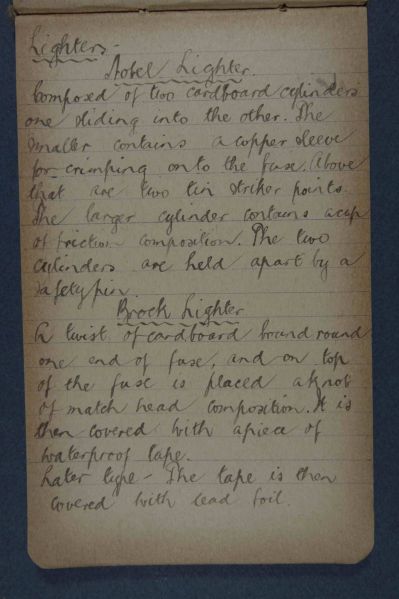 Lighters.-
Nobel Lighter.
Composed of two cardboard cylinders
one sliding into the other. The
smaller contains a copper sleeve
for crimping onto the fuse. Above
that are two tin striker points.
The larger cylinder contains a cup
of friction composition. The two
cylinders are held apart by a
safety pin.
Brock Lighter
A twist of cardboard bound round
one end of fuse, and on top
of the fuse is placed a knob
of match head composition. It is
then covered with a piece of
waterproof tape.
Later type - The tape is then
covered with lead foil.